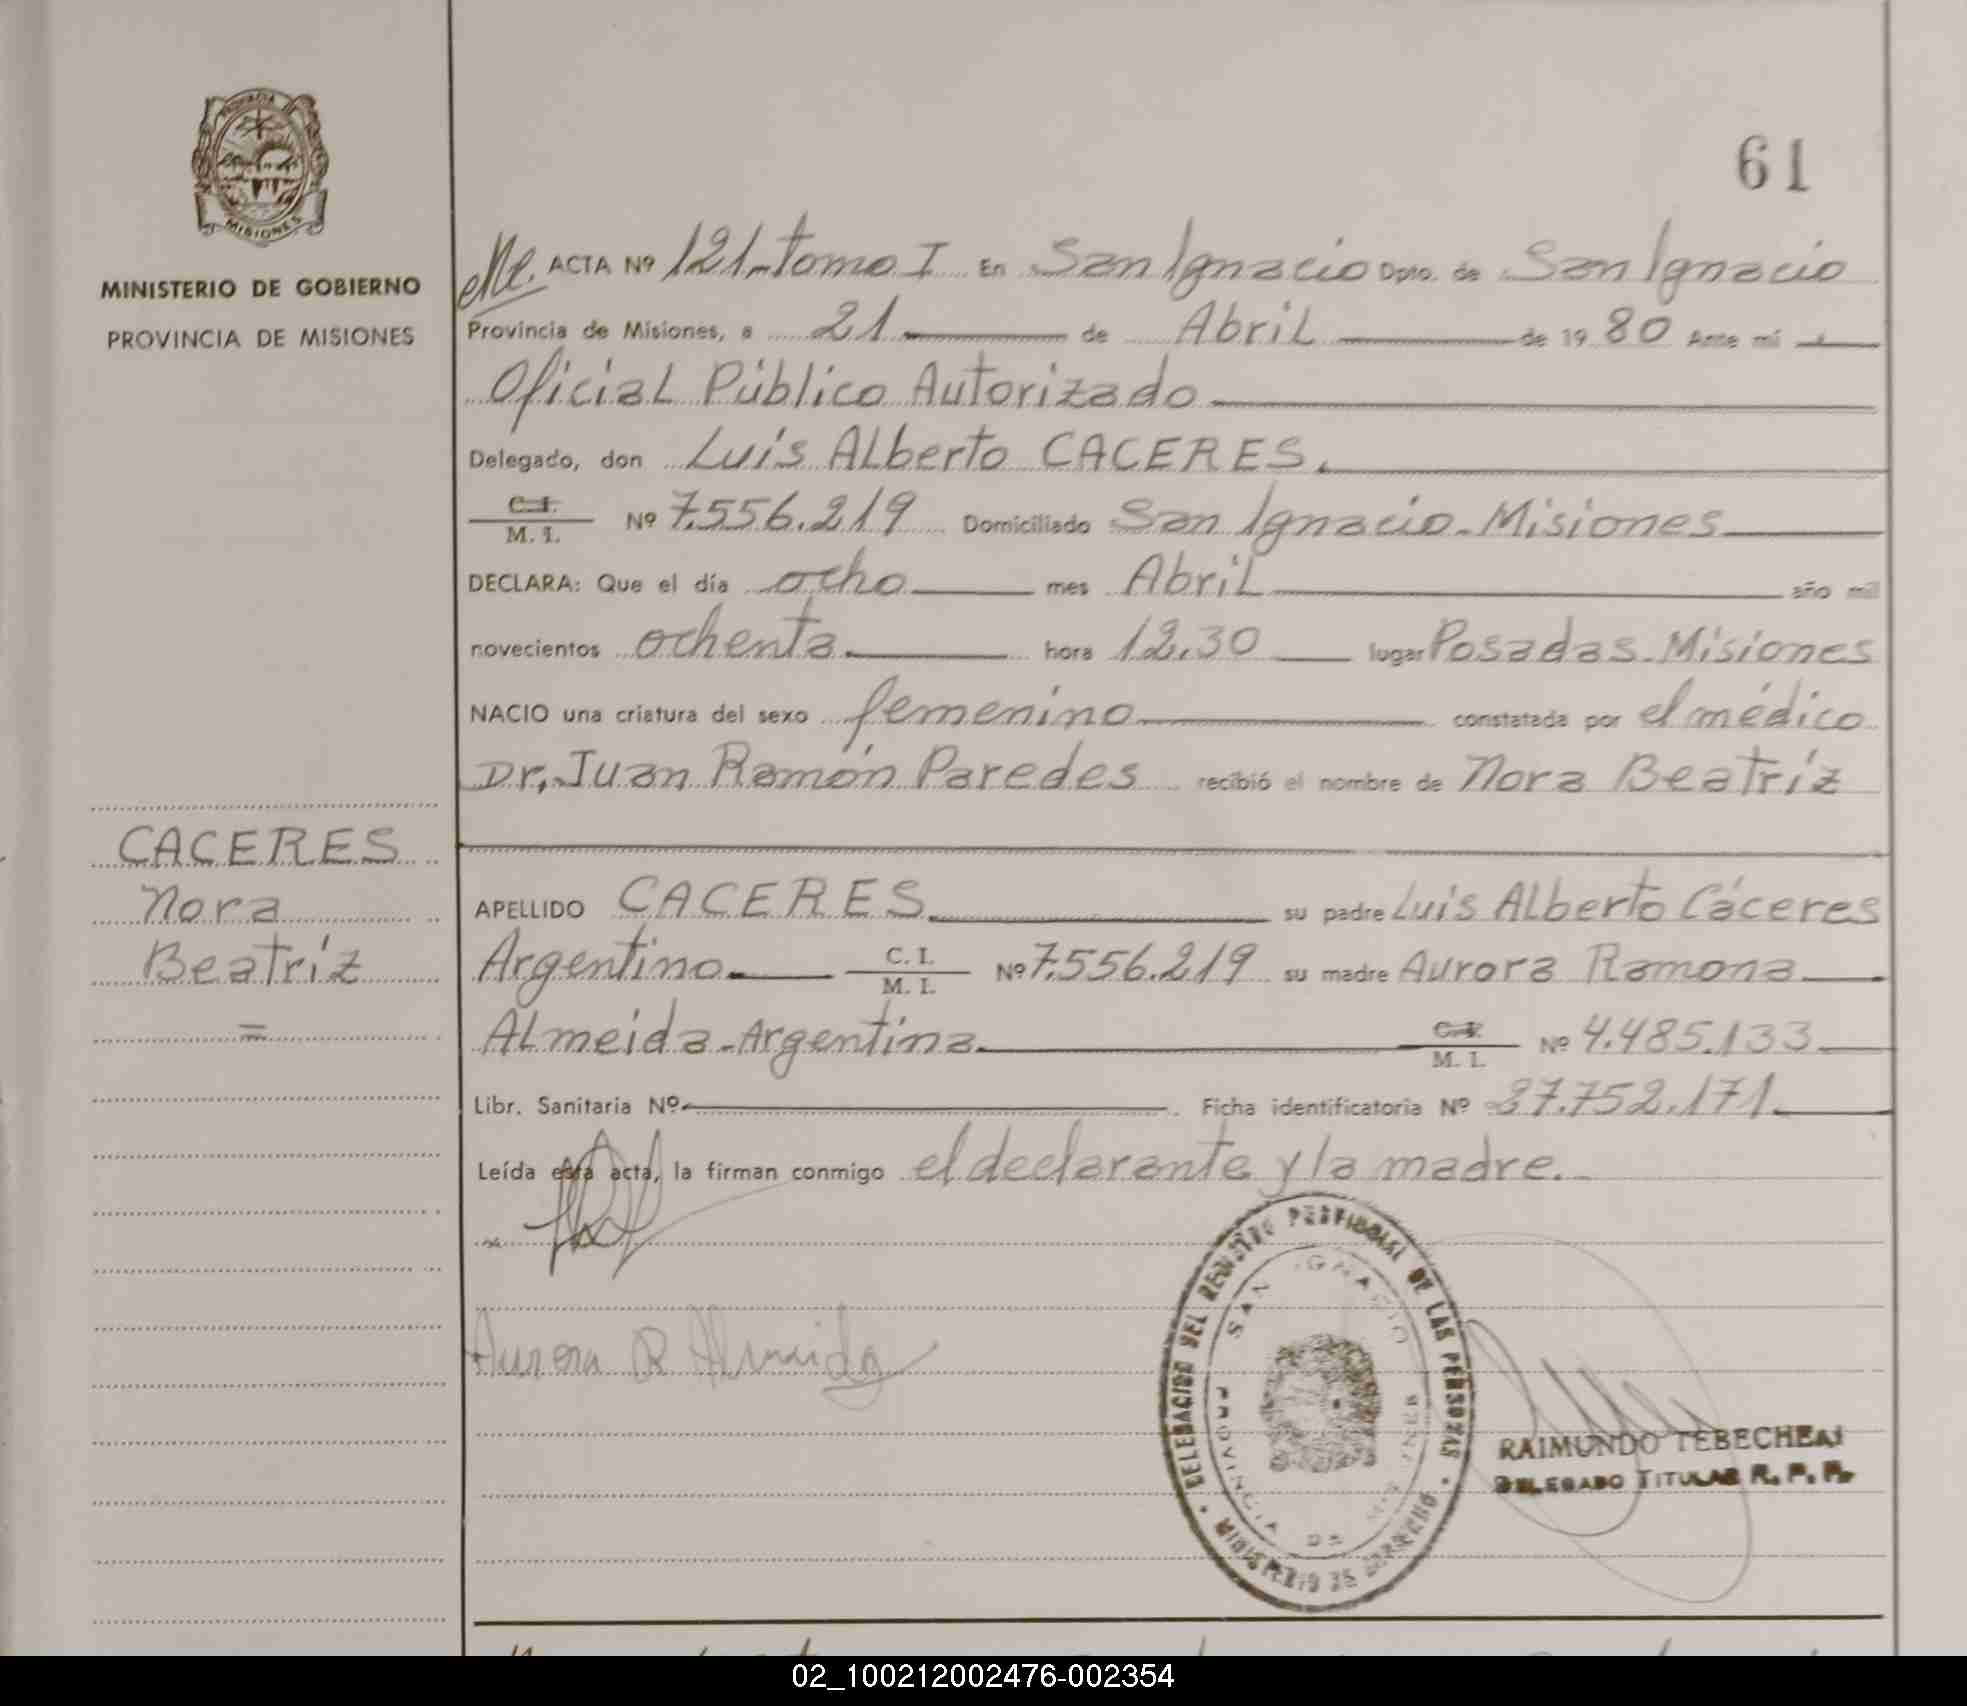 PROVINCIA DE
MISIONES
MINISTERIO DE GOBIERNO
PROVINCIA DE MISIONES
CACERES
Nora
Beatríz
=
61
ACTA Nº 121-Tomo I En San Ignacio Dpto. de San Ignacio
Provincia de Misiones, a 21 de Abril de 19 80 Ante mí
Oficial Público Autorizado
Delegado, don Luis Alberto CACERES.
C. I.
M. I.
Nº 7.556.219 Domiciliado San Ignacio-Misiones
DECLARA: Que el día ocho mes Abril año mil
novecientos ochenta hora 12,30 lugar Posadas-Misiones
NACIO una criatura del sexo femenino constatada por el médico
Dr, Juan Ramón Paredes recibió el nombre de Nora Beatríz
APELLIDO CACERES su padre Luis Alberto Cáceres
Argentino C. I.
M. I. Nº 7.556.219 su madre Aurora Ramona
Almeida-Argentina C. I.
M. I. Nº 4.485.133
Libr. Sanitaria Nº Ficha identificatoria Nº 27.752.171
Leída esta acta, la firman conmigo el declarante y la madre.
Aurora R Almeida
DELEGACION DEL REGISTRO PROVINCIAL DE LAS PERSONAS
SAN IGNACIO
PROVINCIA DE MISIONES
MINISTERIO DE GOBIERNO
RAIMUNDO TEBECHEAI
DELEGADO TITULAR R. P. P.
02_100212002476-002354